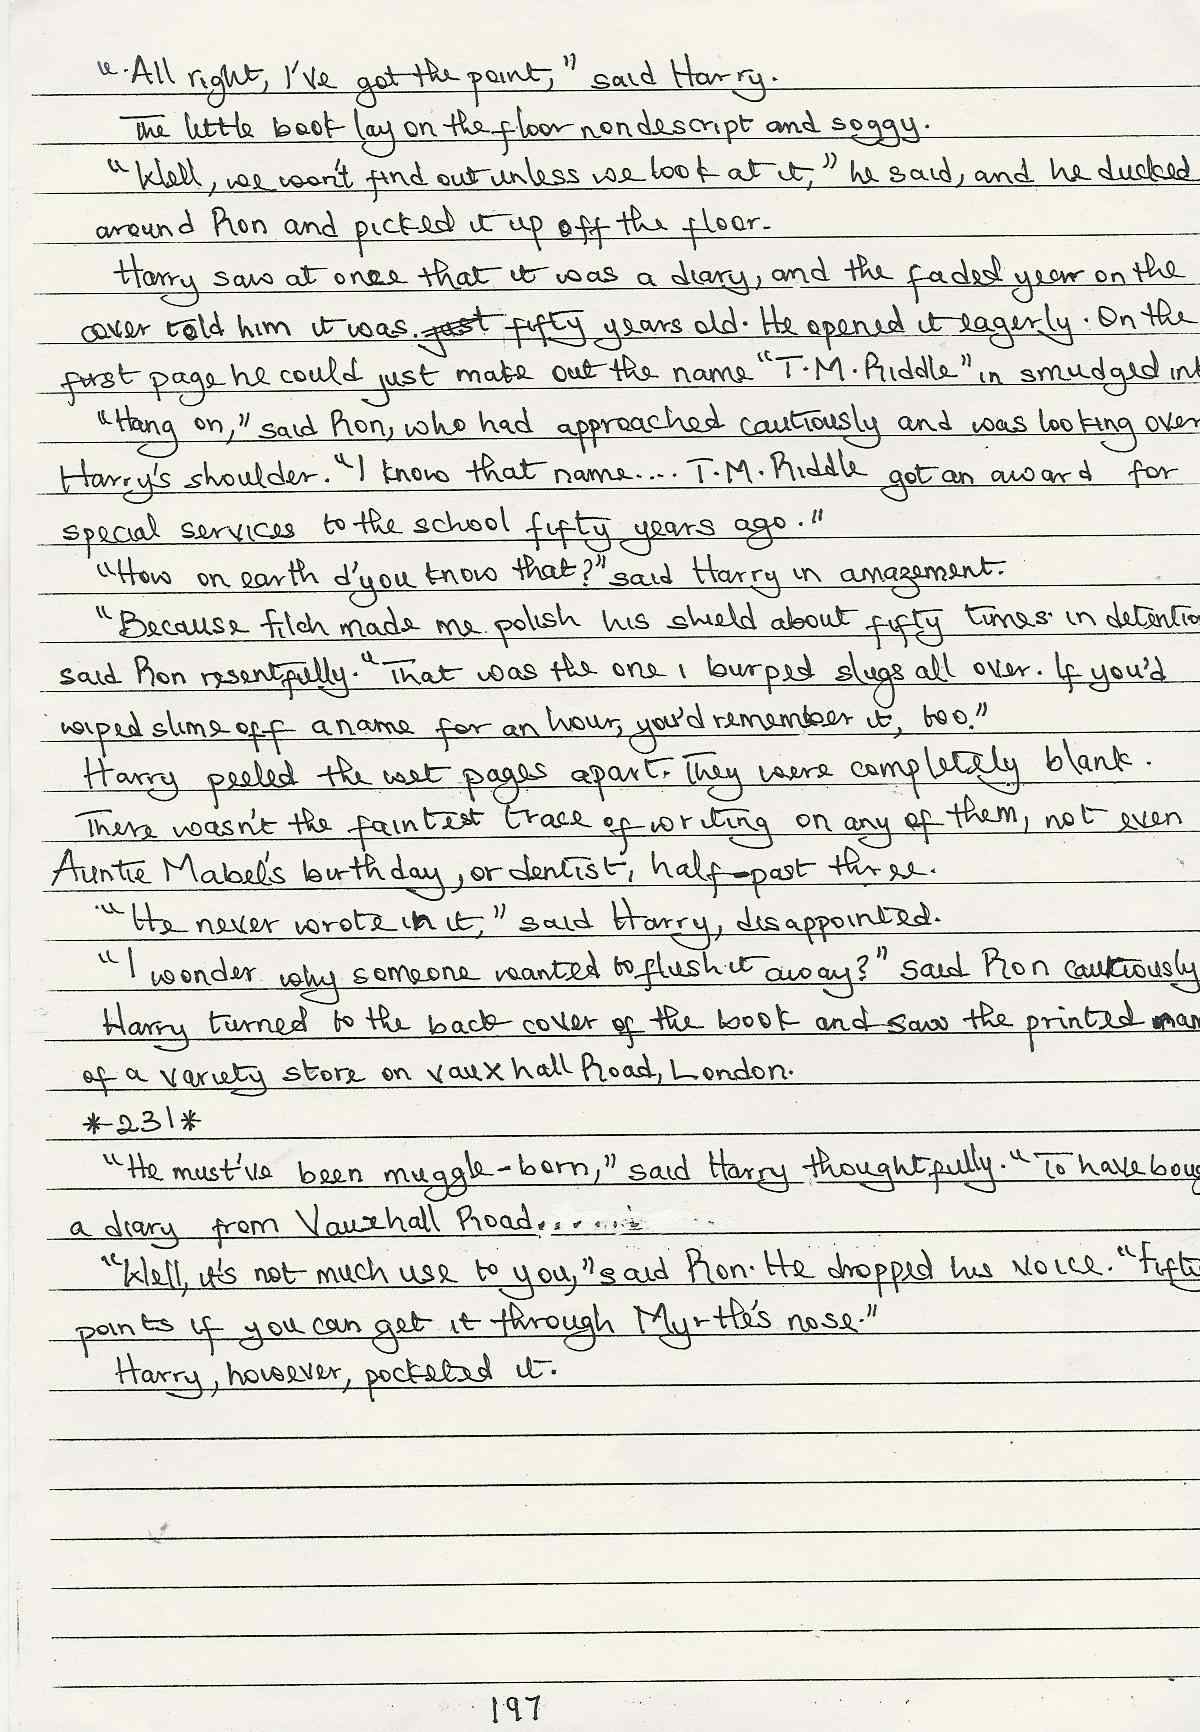 "All right, I've got the point," said Harry.
The little book lay on the floor nondescript and soggy.
"Well, we won't find out unless we look at it," he said, and he ducked
around Ron and picked it up off the floor.
Harry saw at once that it was a diary, and the faded year on the
cover told him it was just fifty years old. He opened it eagerly. On the
first page he could just make out the name "T.M. Riddle" in smudged ink
"Hang on," said Ron, who had approached cautiously and was looking over
Harry's shoulder. "I know that name.... T.M. Riddle got an award for
special services to the school fifty years ago."
"How on earth d'you know that?" said Harry in amazement.
"Because filch made me polish his shield about fifty times in detentio
said Ron resentfully. "That was the one I burped slugs all over. If you'd
wiped slime off a name for an hour, you'd remember it, too."
Harry peeled the wet pages apart. They were completely blank.
There wasn't the faintest trace of writing on any of them, not even
Auntie Mabel's birthday, or dentist, half-past three.
"He never wrote in it," said Harry, disappointed.
"I wonder why someone wanted to flush it away?" said Ron cautiously
Harry turned to the back cover of the book and saw the printed nam
of a variety store on Vauxhall Road, London.
*231*
"He must've been muggle-born," said Harry thoughtfully. "To have boug
a diary from Vauxhall Road......
"Well, it's not much use to you," said Ron. He dropped his voice. "Fift
points if you can get it through Myrtle's nose."
Harry, however, pocketed it.
197